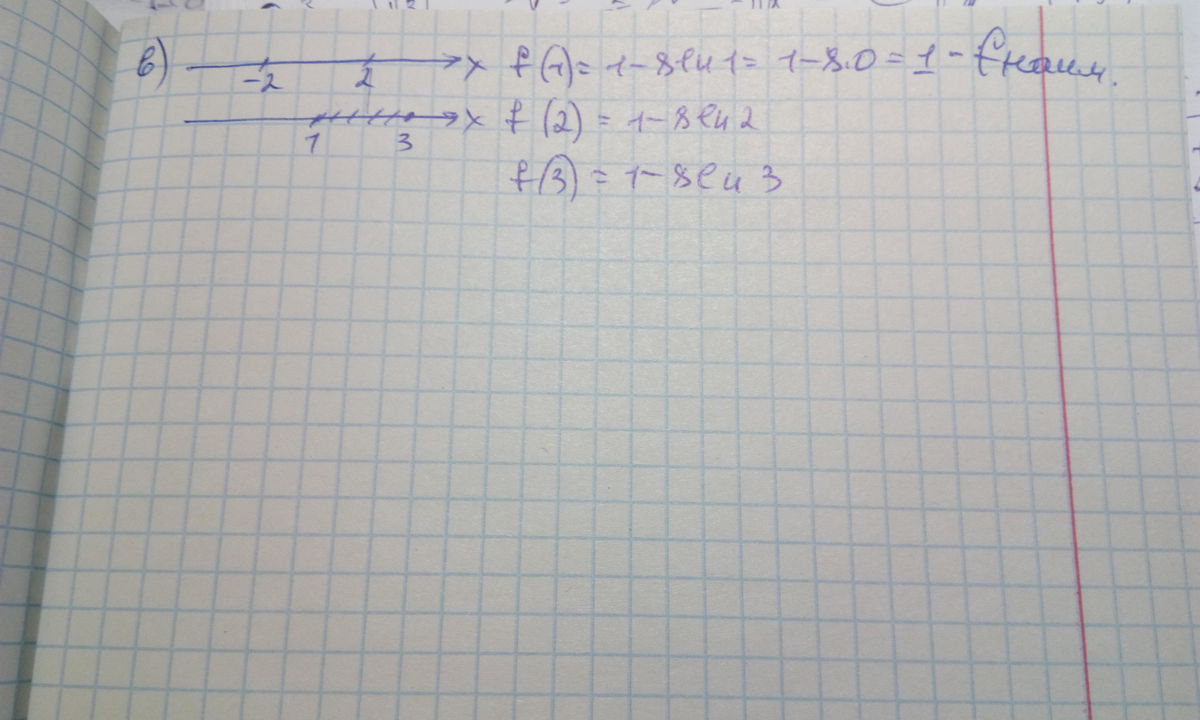 в) -2 2 x f(1) = 1-8ln1 = 1-8.0 = 1 - fнаим.
1 3 x f(2) = 1-8ln2
f(3) = 1-8ln3